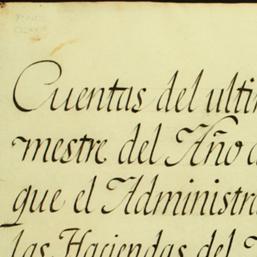 Cuentas del ulti
mestre del Año
que el Administra
las Haciendas del